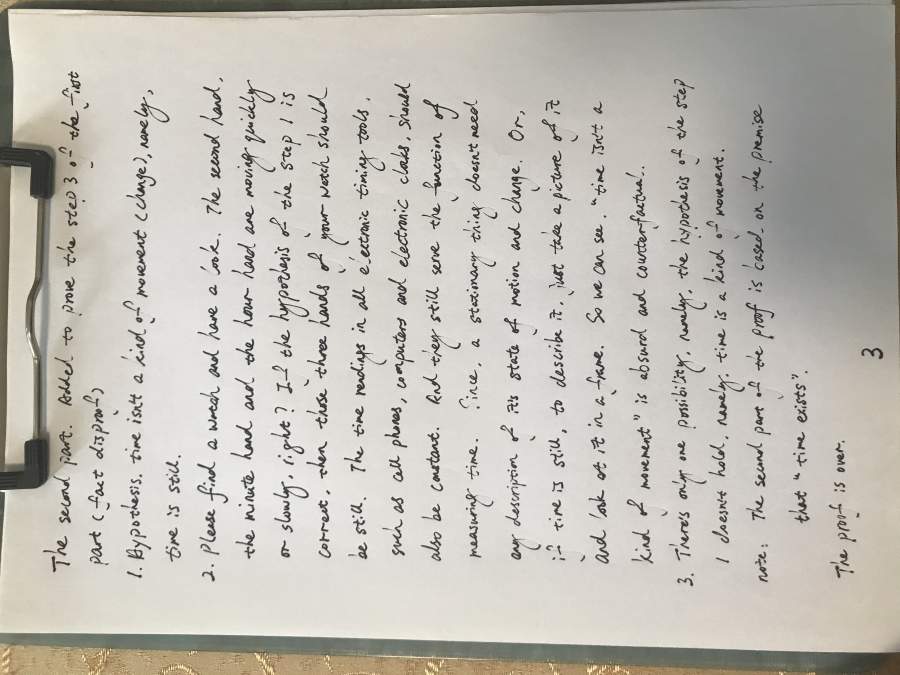 The second part. Added to prove the step 3 of the first
part (fact disproof)
1. Hypothesis. time isn't a kind of movement (change), namely,
time is still.
2. Please find a watch and have a look. The second hand,
the minute hand and the hour hand are moving quickly
or slowly, right? If the hypothesis of the step 1 is
correct, then those three hands of your watch should
be still. The time readings in all electronic timing tools,
such as cell phones, computers and electronic clocks, should
also be constant. And they still serve the function of
measuring time. Since, a stationary thing doesn't need
any description of it's state of motion and change. Or,
if time is still, to describe it, just take a picture of it
and look at it in a frame. So we can see. "time isn't a
kind of movement" is absurd and counterfactual.
3. There's only one possibility, namely, the hypothesis of the step
1 doesn't hold, namely, time is a kind of movement.
note: The second part of the proof is based on the premise
that "time exists".
The proof is over.
3